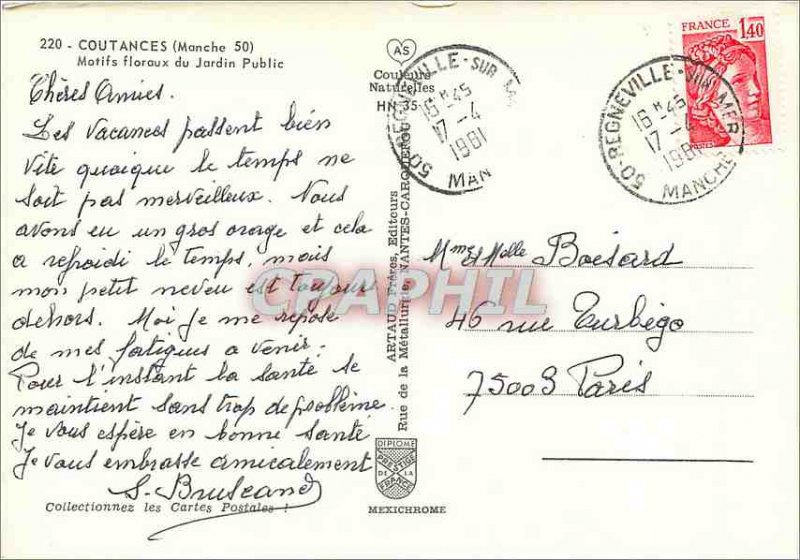 220 - COUTANCES (Manche 50)
Motifs floraux du Jardin Public
Chères Amies.
Les vacances passent bien
vite quoique le temps ne
soit pas merveilleux. Nous
avons eu un gros orage et cela
a refroidi le temps, mais
mon petit neveu est toujours
dehors. Moi je me repose
de mes fatigues a venir.
Pour l'instant la santé se
maintient sans trop de problème.
Je vous espère en bonne santé
Je vous embrasse amicalement
Collectionnez les Cartes Postales !
AS
Couleurs
Naturelles
HN 35
ARTAUD Frères, Editeurs
Rue de la Métallurgie NANTES-CARQUEFOU
DIPLOME
PRESTIGE
DE LA
FRANCE
MEXICHROME
50-REGNEVILLE-SUR M
16 H 45
17 - 4
1981
MAN
FRANCE
1,40
POSTES
50-REGNEVILLE-SUR MER
16 H 45
17 - 4
1981
MANCHE
Mme et Melle Boisard
46 rue Turbigo
75003 Paris
CRAPHIL